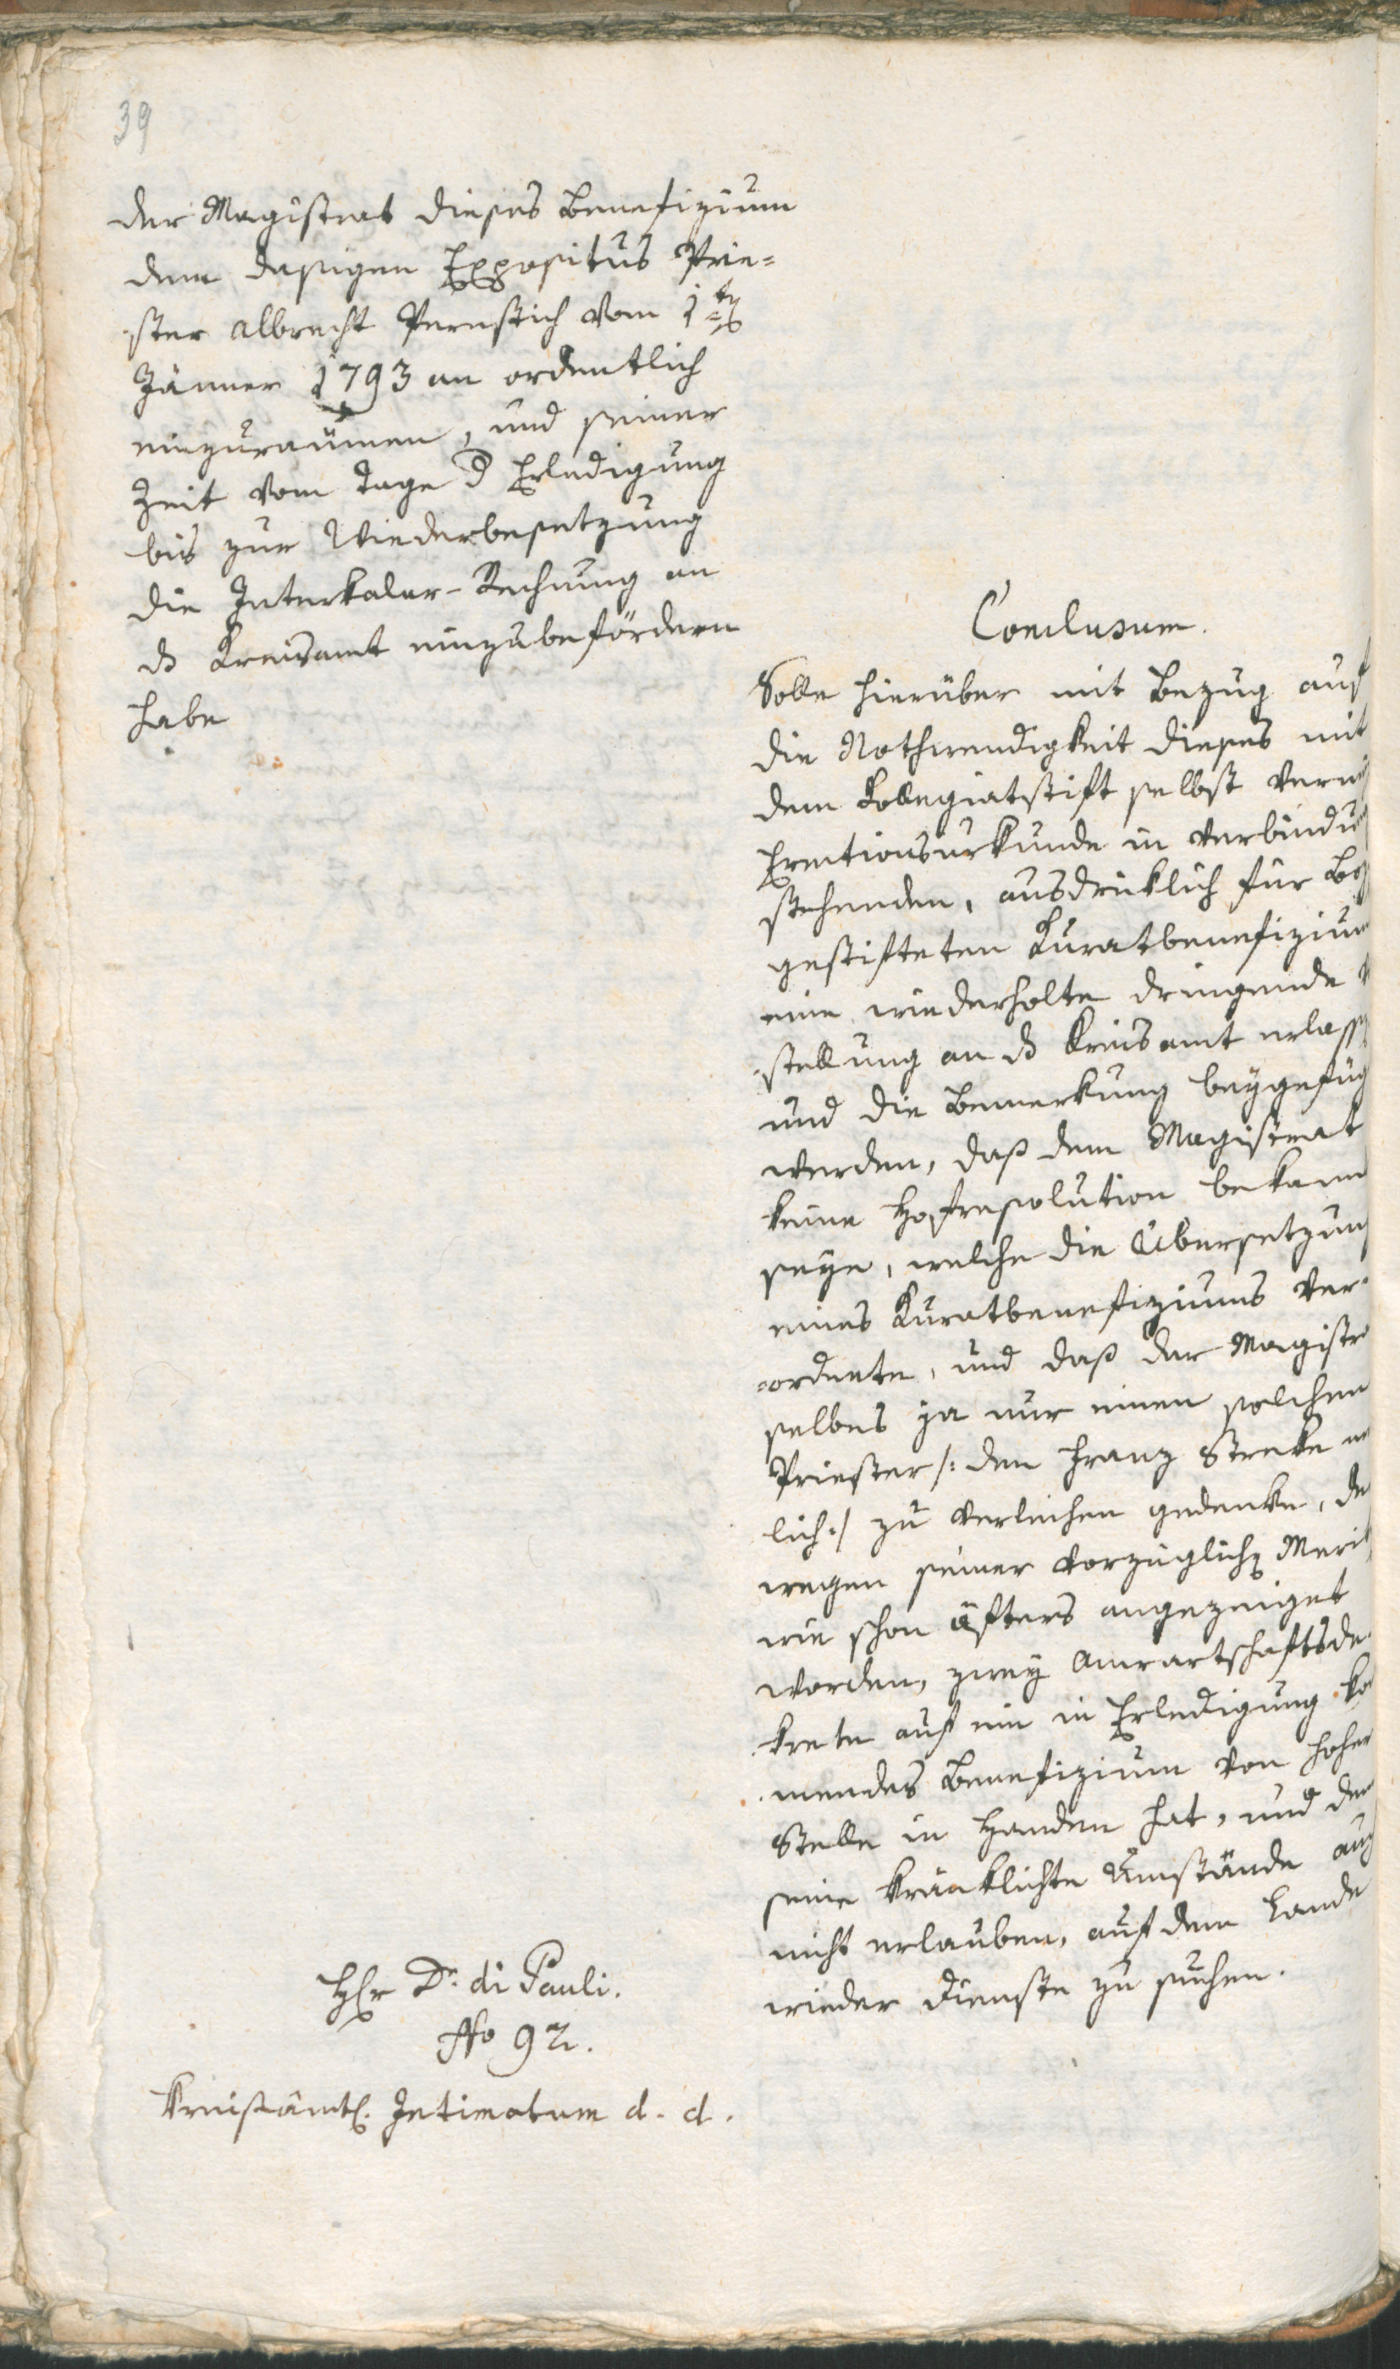 39
der Magistrat dieses Benefizium
dem dasigen Expositus Prie=
ster Albrecht Pernstich vom 1ten
Jänner 1793 an ordentlich
einzuraümen, und seiner
Zeit vom Tage d Erledigung
bis zur Wiederbesetzung
die Interkalar-Rechnung an
ds Kreisamt einzubefördern
habe
Conclusum.
Solle hierüber mit Bezug auf
die Nothwendigkeit dieses mit
dem Kollegiatstift selbst verm
Erectionsurkunde in Verbindun
stehenden, ausdrüklich für Boz
gestifteten Kuratbenefizium
eine wiederholte dringende V
stellung an ds Kreisamt erlass
und die Bemerkung beygefüg
werden, daß dem Magistrat
keine Hofresolution bekann
seye, welche die Übersetzun
eines Kuratbenefiziums ver-
ordnete, und daß der Magistra
selbes ja nur einen solchen
Priester /: den Franz Streke n
lich :/ zu verleihen gedenke, de
wegen seiner vorzüglichen Merit
wie schon öfters angezeiget
worden, zwey Anwartschaftsde
krete auf ein in Erledigung ko
mendes Benefizium von hoher
Stelle in Handen hat, und dem
seine kränklichte Umstände auch
nicht erlauben, auf dem Lande
wieder Dienste zu suchen.
Hr Dr. di Pauli.
No 92.
Kreisämtl. Intimatum d. d.